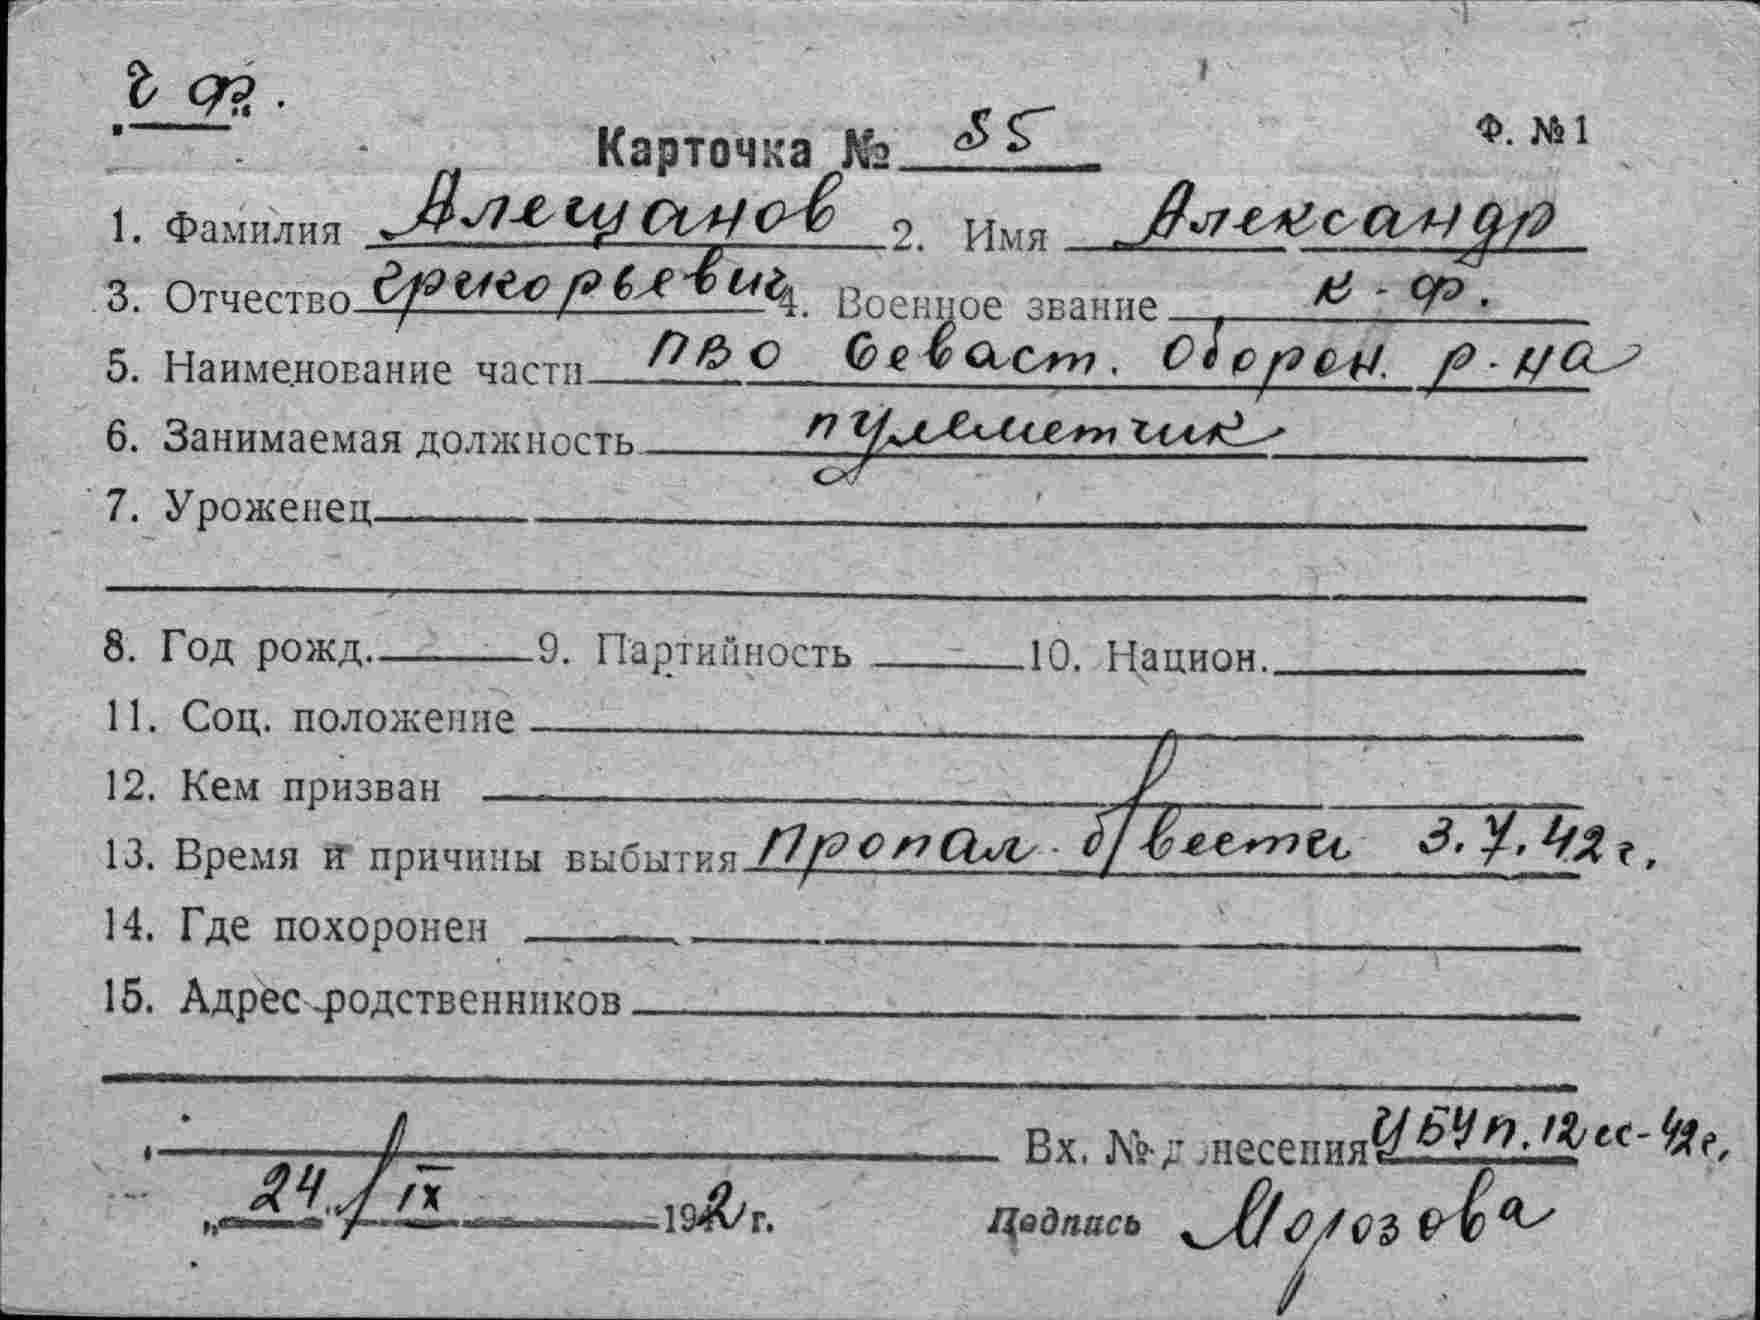 Ч Ф.
Карточка № 35 Ф. №1
1. Фамилия Алещанов 2. Имя Александр
3. Отчество Григорьевич 4. Военное звание к-ф.
5. Наименование части ПВО Севаст. Оборон. р-на
6. Занимаемая должность пулеметчик
7. Уроженец
8. Год рожд. 9. Партийность 10. Национ.
11. Соц. положение
12. Кем призван
13. Время и причины выбытия Пропал б/вести 3.7.42г.
14. Где похоронен
15. Адрес родственников
Вх. № донесения УБУ п.12сс-42г.
„24" / IX 1942 г. Подпись Морозова